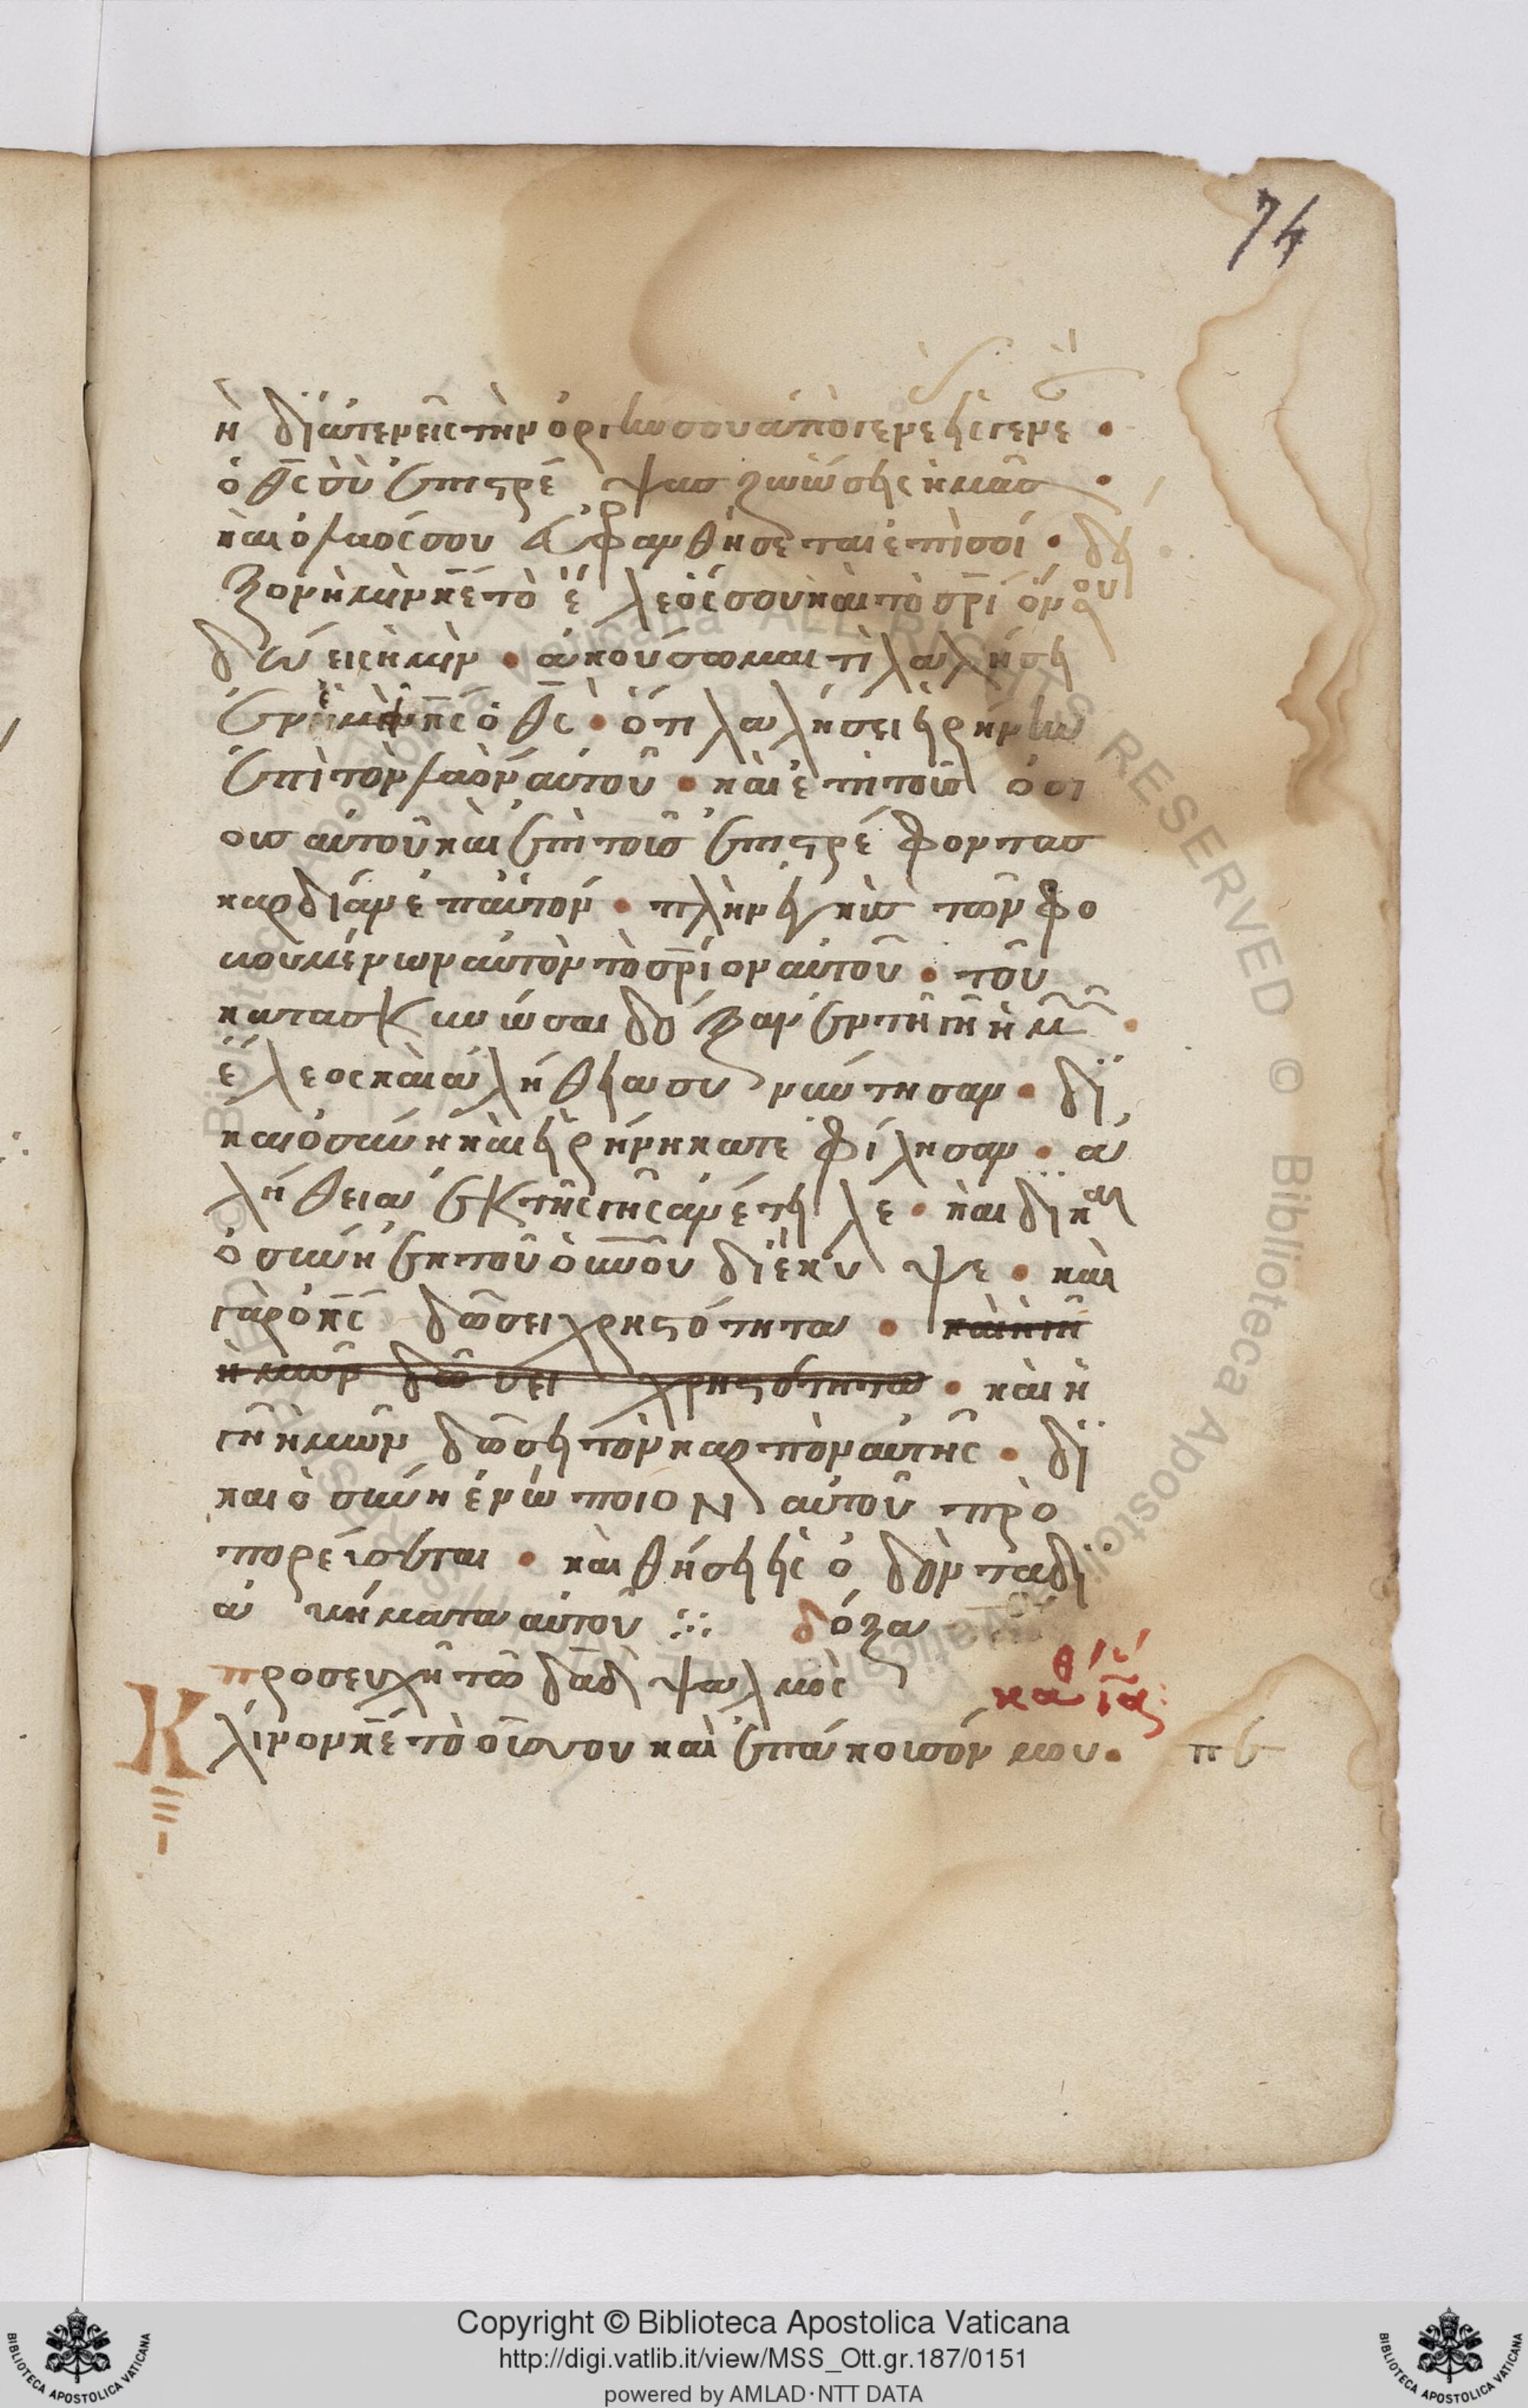 74
ἢ διατενεῖς τὴν ὀργὴν σου ἀπὸ γενεὰς εἰς γενεὰν •
ὁ θ̅ς̅ σὺ ἐπιστρέψας ζωώσεις ἡμᾶς •
καὶ ὁ λαός σου εὐφρανθήσεται ἐπὶ σοί • δεῖ
ξον ἡμῖν κ̅ε̅ τὸ ἔλεός σου καὶ τὸ σ̅ρ̅ιόν σου
δώεις ἡμῖν • ἀκούσωμαι τί λαλήσει
ἐν ἐμοὶ κ̅ς̅ ὁ θ̅ς̅ • ὅτι λαλήσει εἰρήνην
ἐπὶ τὸν λαὸν αὐτοῦ • καὶ ἐπὶ τοῖς ὁσί
οις αὐτοῦ καὶ ἐπὶ τοῖς ἐπιστρέφοντας
καρδίαν ἐπ' αὐτόν • πλὴν ἐγγὺς τῶν φο
βουμένων αὐτὸν τὸ σ̅ρ̅ιον αὐτοῦ • τοῦ
κατασκηνώσαι δόξαν ἐν τῇ γῇ ἡμῶν •
ἔλεος καὶ ἀλήθεια συνήντησαν • δι
καιοσύνη καὶ εἰρήνη κατεφίλησαν • ἀ
λήθεια ἐκ τῆς γῆς ἀνέτειλε • καὶ δικαι
οσύνη ἐκ τοῦ ο̅υ̅ν̅οῦ διέκυψε • καὶ
γὰρ ὁ κ̅ς̅ δώσει χρηστότητα • καὶ ἡ γῆ
ἡμῶν δώσει χρηστότητα • καὶ ἡ
γῆ ἡμῶν δώσει τὸν καρπὸν αὐτῆς • δι
καιοσύνη ἐνώπιον αὐτοῦ προ
πορεύσεται • καὶ θήσει εἰς ὁδὸν τὰ δι
αβήματα αὐτοῦ ⁘ δόξα
προσευχὴ τῶ δα̅δ̅ ψαλμὸς
κάθισμα ι̅α̅
Κλῖνον κ̅ε̅ τὸ οὖς σου καὶ ἐπάκουσόν μου • πε
Copyright © Biblioteca Apostolica Vaticana
http://digi.vatlib.it/view/MSS_Ott.gr.187/0151
powered by AMLAD·NTT DATA